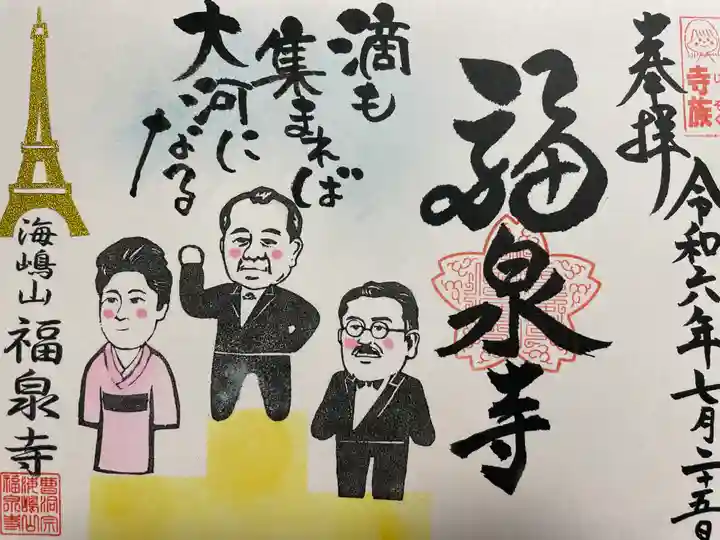 寺族
じぞく
奉拝
令和六年七月二十五日
福泉寺
滴も
集まれば
大河に
なる
海嶋山 福泉寺
曹洞宗
海嶋山
福泉寺